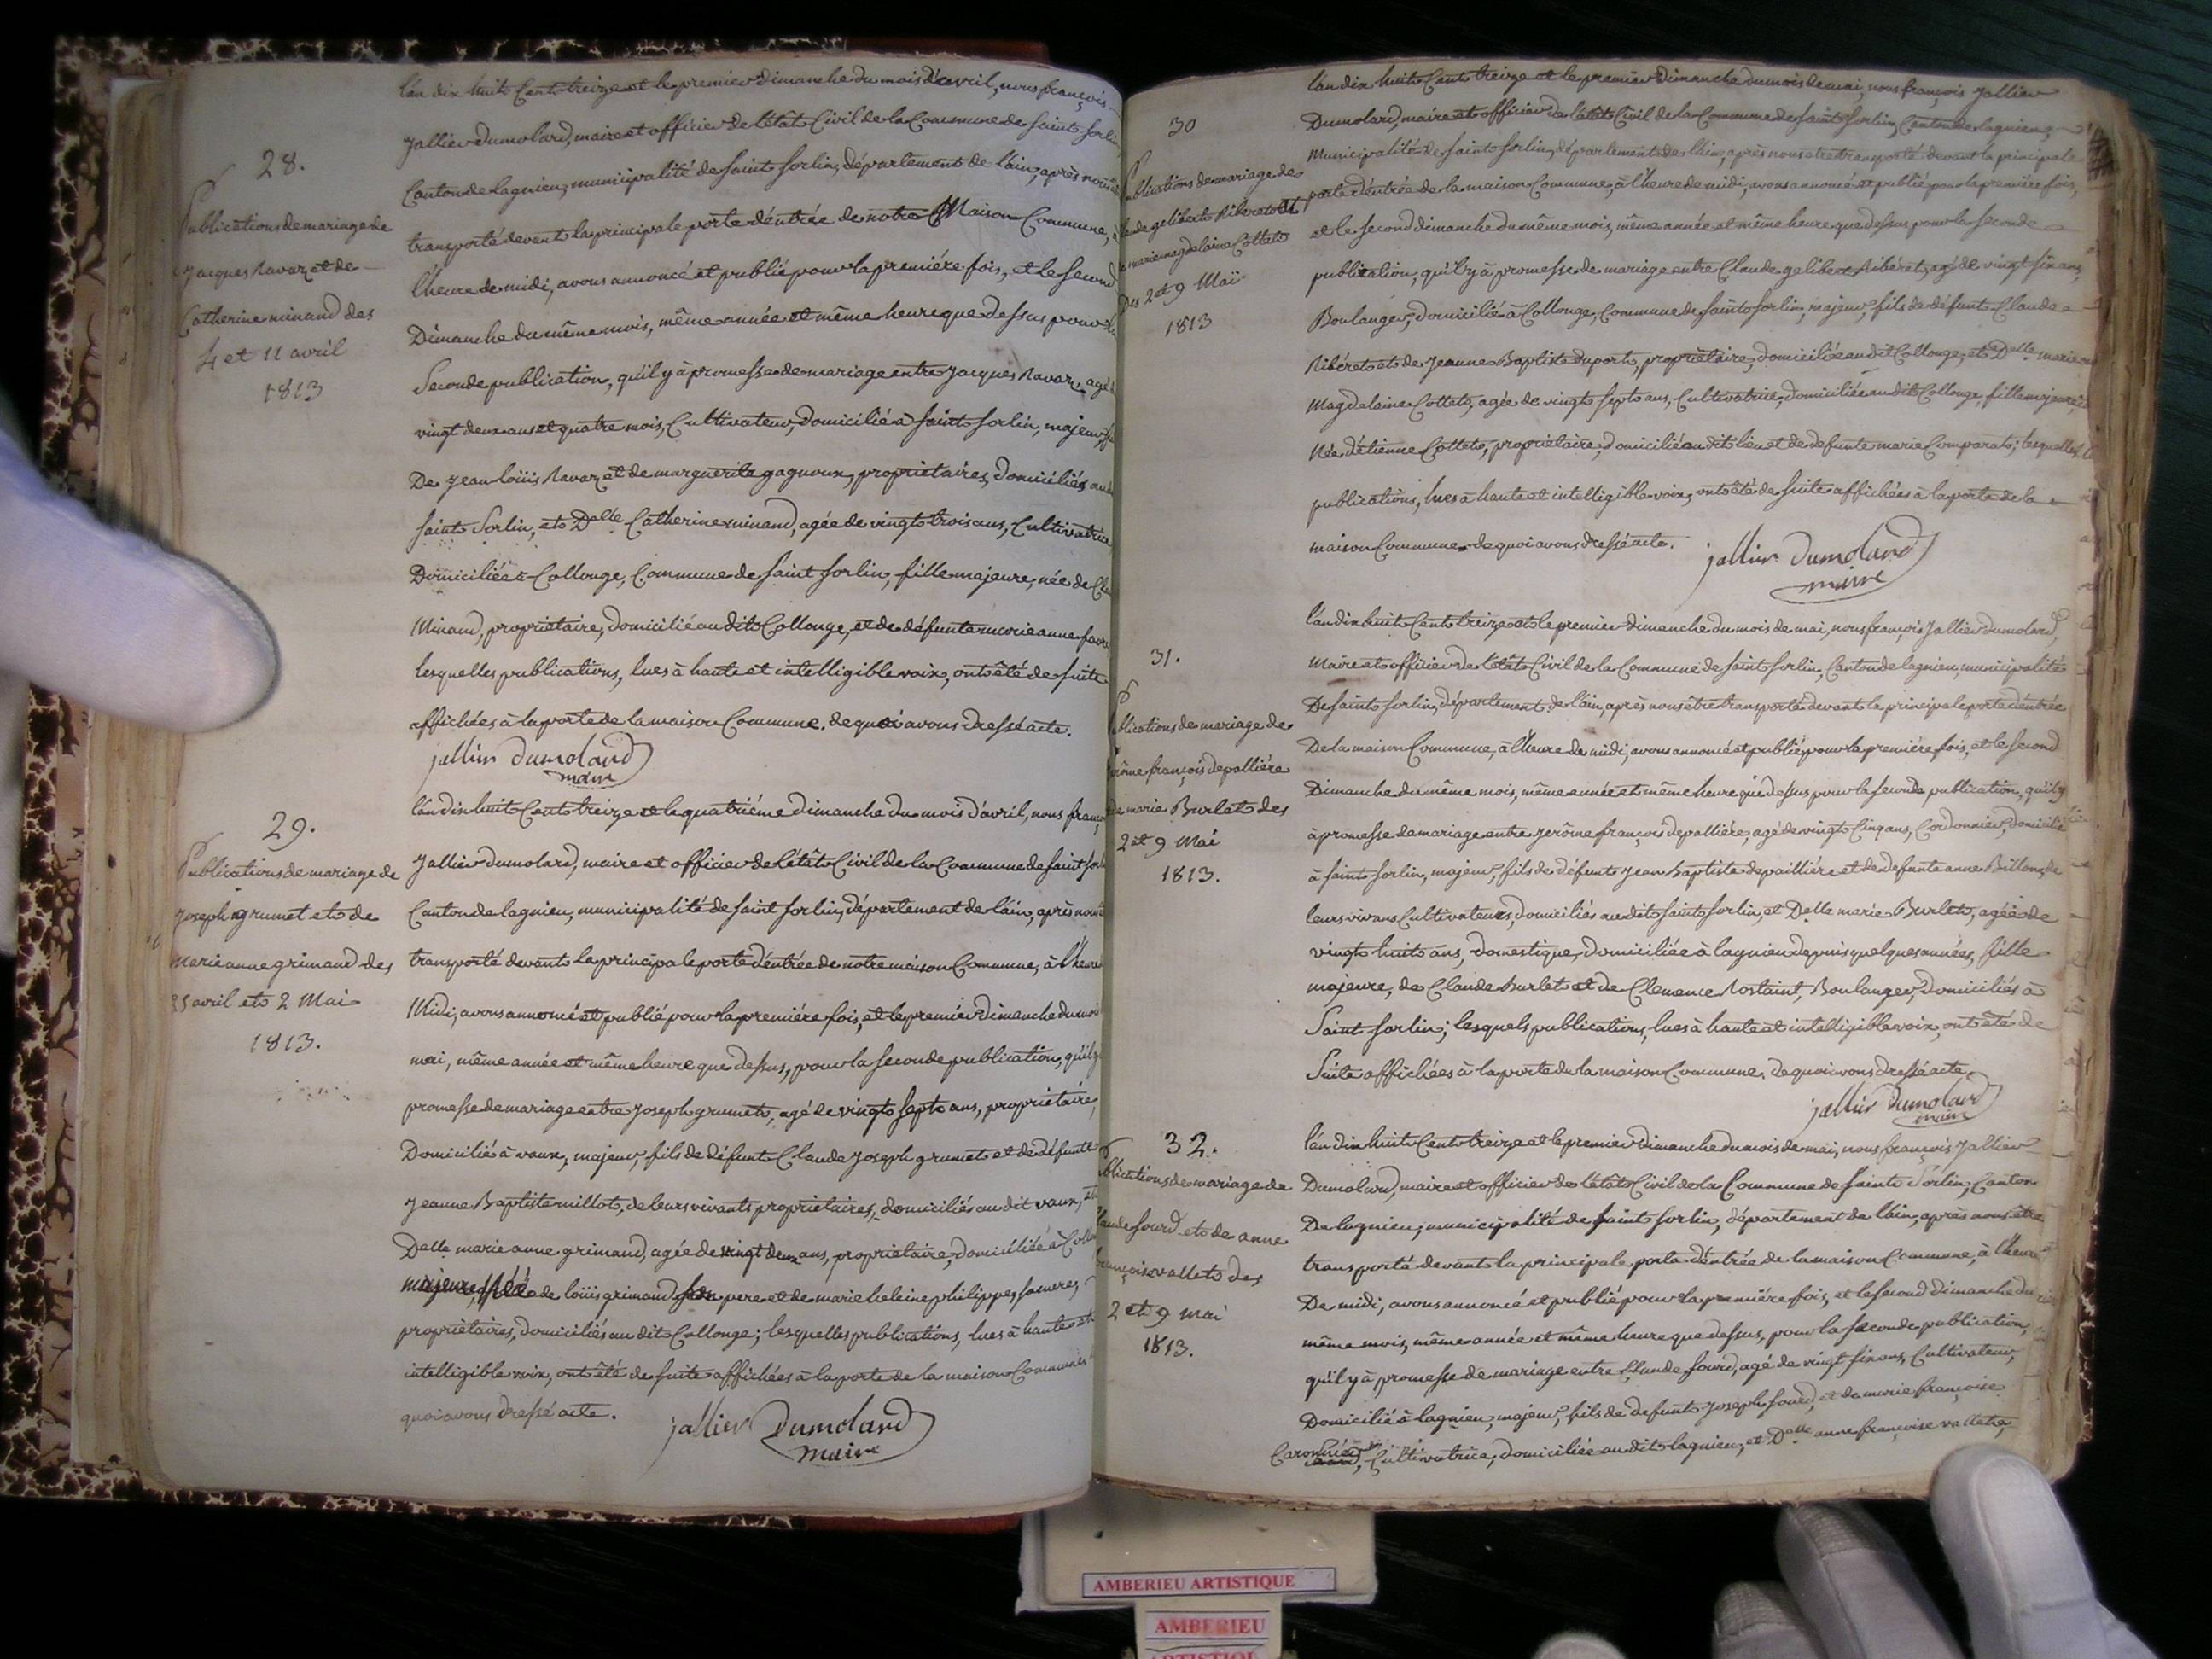 28.
Publications de mariage de
Jacques Ravaz et de
Catherine minand des
4 et 11 avril
1813
l'an dix huit Cent treize et le premier dimanche du mois d'avril, nous françois
Jallier dumolard, maire et officier de l'état Civil de la Commune de Saint Sorlin
Canton de lagnieu, municipalité de Saint Sorlin, département de l'ain, après nous
transporté devant la principale porte d'éntrée de notre Maison Commune, à
l'heure de midi, avons annoncé et publié pour la premiére fois, et le second
Dimanche du même mois, même année et même heure que dessus pour la
Seconde publication, qu'il y à promesse de mariage entre Jacques Ravaz, agé
vingt deux ans et quatre mois, Cultivateur, domicilié à Saint Sorlin, majeur, fils
De Jean loüis Ravaz et de marguerite gagnoux, propriétaires, domiciliés au
Saint Sorlin, et Delle Catherine minand, agée de vingt trois ans, Cultivatrice
Domiciliée à Collonge, Commune de Saint Sorlin, fille majeure, née de
Minand, propriétaire, domicilié au dit Collonge, et de défunte marie anne favre
lesquelles publications, lues à haute et intelligible voix, ont été de suite
affichées à la porte de la maison Commune. de quoi avons dressé acte.
jallier Dumolard
maire
29.
Publications de mariage de
Joseph grumet et de
marie anne grimand des
25 avril et 2 Mai
1813.
l'an dix huit Cent treize et le quatriéme dimanche du mois d'avril, nous
Jallier dumolard, maire et officier de l'état Civil de la Commune de Saint
Canton de lagnieu, municipalité de Saint Sorlin, département de l'ain, après nous
transporté devant la principale porte d'éntrée de notre maison Commune, à l'heure
Midi, avons annoncé et publié pour la premiére fois, et le premier dimanche du mois
mai, même année et même heure que dessus, pour la seconde publication, qu'il y
promesse de mariage entre Joseph grumet, agé de vingt sept ans, propriétaire,
Domicilié à vaux, majeur, fils de défunt Claude Joseph grumet et de défunte
Jeanne Baptiste millot, de leurs vivants propriétaires, domiciliés au dit vaux,
Delle marie anne grimand, agée de vingt deux ans, propriétaire, domiciliée à
majeure, de loüis grimand pere et de marie heleine philippe, ses meres,
propriétaires, domiciliés au dit Collonge; lesquelles publications, lues à haute et
intelligible voix, ont été de suite affichées à la porte de la maison Commune
quoi avons dressé acte.
jallier Dumolard
maire
30
Publications de mariage de
gelibert Ribéret et
marie magdelaine Cottet
Des 2 et 9 Mai
1813
l'an dix huit Cent treize et le premier dimanche du mois de mai, nous françois Jallier
Dumolard, maire et officier de l'état Civil de la Commune de Saint Sorlin, Canton de lagnieu,
Municipalité de Saint Sorlin, département de l'ain, après nous etre transporté devant la principale
porte d'éntrée de la maison Commune, à l'heure de midi, avons annoncé et publié pour la premiére fois,
et le second dimanche du même mois, même année et même heure que dessus pour la seconde
publication, qu'il y à promesse de mariage entre Claude gelibert Ribéret, agé de vingt six ans,
Boulanger, domicilié à Collonge, Commune de Saint Sorlin, majeur, fils de défunt Claude
Ribéret et de Jeanne Baptiste duport, propriétaire, domiciliée au dit Collonge, et Delle marie
Magdelaine Cottet, agée de vingt sept ans, Cultivatrice, domiciliée au dit Collonge, fille majeure,
Née d'étienne Cottet, propriétaire, domicilié au dit lieu et de defunte marie Comparat; lesquelles
publications, lues à haute et intelligible voix, ont été de suite affichées à la porte de la
maison Commune. de quoi avons dressé acte.
jallier Dumolard
maire
31.
Publications de mariage de
Jerôme françois depalliére
de marie Burlet des
2 et 9 Mai
1813.
l'an dix huit Cent treize et le premier dimanche du mois de mai, nous françois Jallier dumolard,
Maire et officier de l'état Civil de la Commune de Saint Sorlin, Canton de lagnieu, municipalité
De Saint Sorlin, département de l'ain, après nous être transporté devant la principale porte d'éntrée
De la maison Commune, à l'heure de midi, avons annoncé et publié pour la premiére fois, et le second
Dimanche du même mois, même année et même heure que dessus pour la seconde publication, qu'il y
à promesse de mariage entre Jerôme françois depalliére, agé de vingt Cinq ans, Cordonnier, domicilié
à Saint Sorlin, majeur, fils de défunt Jean Baptiste depailliére et de defunte anne Billon, de
leurs vivans Cultivateurs, domiciliés au dit Saint Sorlin, et Delle marie Burlet, agée de
vingt huit ans, domestique, domiciliée à lagnieu depuis quelques années, fille
majeure, de Claude Burlet et de Clemence Rostaint, Boulanger, domiciliés à
Saint Sorlin; lesquels publications, lues à haute et intelligible voix, ont été de
Suite affichées à la porte de la maison Commune, de quoi avons dressé acte.
jallier Dumolard
maire
32.
Publications de mariage de
Claude Sourd et de anne
françoise vallet des
2 et 9 mai
1813.
l'an dix huit Cent treize et le premier dimanche du mois de mai, nous françois Jallier
Dumolard, maire et officier de l'état Civil de la Commune de Saint Sorlin, Canton
De lagnieu, municipalité de Saint Sorlin, département de l'ain, après nous être
transporté devant la principale porte d'éntrée de la maison Commune, à l'heure
De midi, avons annoncé et publié pour la premiére fois, et le second dimanche du
même mois, même année et même heure que dessus, pour la seconde publication,
qu'il y à promesse de mariage entre Claude Sourd, agé de vingt six ans, Cultivateur,
Domicilié à lagnieu, majeur, fils de defunt Joseph Sourd, et de marie françoise
Cultivatrice, domiciliée au dit lagnieu, et Delle anne françoise vallet,
AMBERIEU ARTISTIQUE
AMBERIEU
ARTISTIQUE